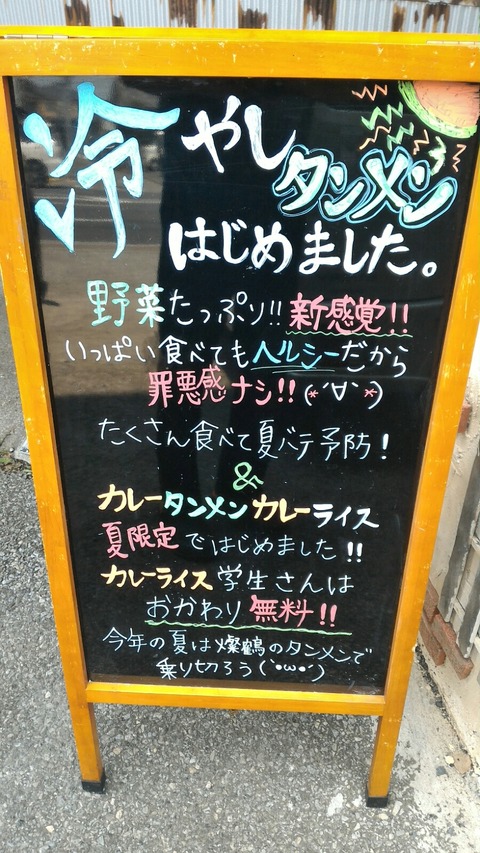 冷やしタンメン
はじめました。
野菜たっぷり!!新感覚!!
いっぱい食べてもヘルシーだから
罪悪感ナシ!!(*´∀`*)
たくさん食べて夏バテ予防!
&
カレータンメンカレーライス
夏限定ではじめました!!
カレーライス学生さんは
おかわり無料!!
今年の夏は燦鶴のタンメンで
乗り切ろう(`•ω•´)